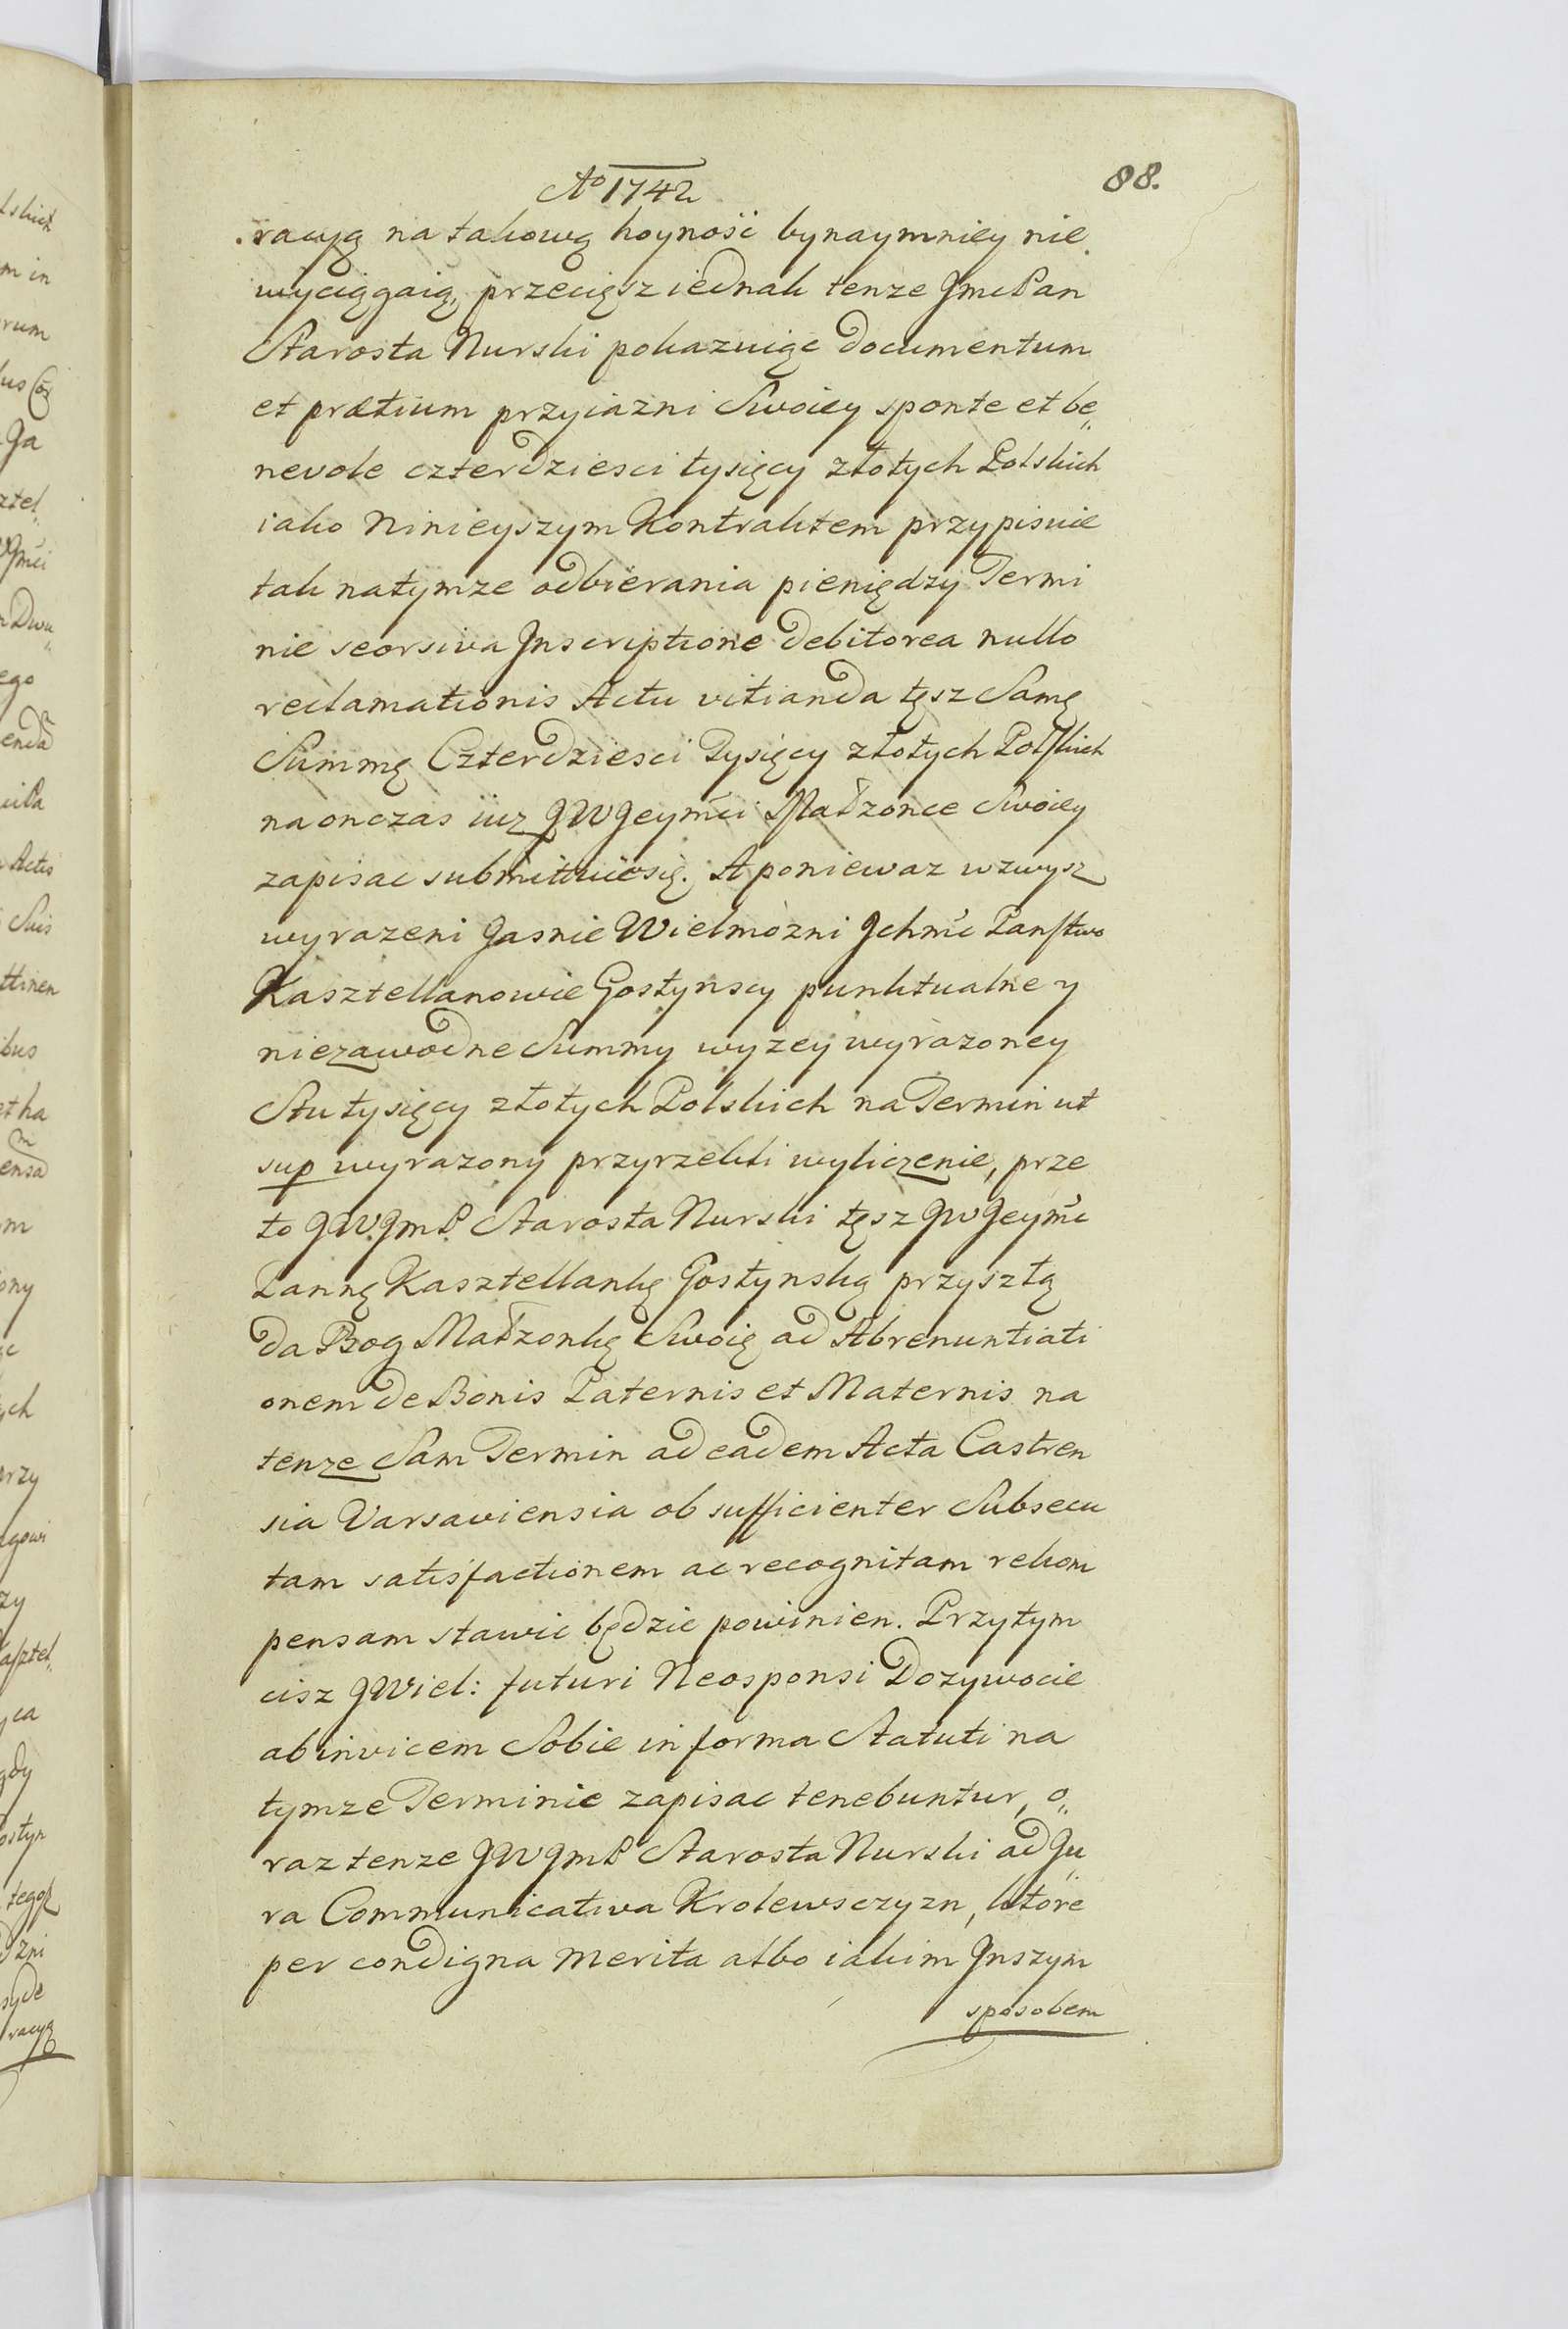 Aº 1742
88.
racyą na takową hoyność bynaymniey nie
wyciągaią, przeciąsz iednak tenze Jmc Pan
Starosta Nurski pokazuiąc documentum
et prætium przyiazni Swoiey sponte et be„
nevole czterdziesci tysięcy złotych Polskich
iako Ninieyszym Kontraktem przypisuie
tak natymze odbierania pieniędzy Termi
nie seorsiva Inscriptione debitorea nullo
reclamationis Actu vitianda tęsz Samę
Summę Czterdziesci Tysięcy złotych Polskich
naonczas iuz JW Jeymci Małzonce Swoiey
zapisac submittuie się. A poniewaz wzwysz
wyrazeni Jasnie Wielmozni Ichmc Panstwo
Kasztellanowie Gostynscy punktualne y
niezawodne Summy wyzey wyrazoney
Stu tysięcy złotych Polskich na Termin ut
sup wyrazony przyrzekli wyliczenie, prze
to JW Jm P Starosta Nurski tęsz JW Jeymc
Pannę Kasztellankę Gostynską przyszłą
da Bog Małzonkę Swoię ad Abrenuntiati
onem de Bonis Paternis et Maternis na
tenze Sam Termin ad eadem Acta Castren
sia Varsaviensia ob sufficienter Subsecu
tam satisfactionem ac recognitam rekom
pensam stawic będzie powinien. Przytym
cisz JWiel: futuri Neosponsi Dozywocie
ab invicem Sobie in forma Statuti na
tymze Terminie zapisac tenebuntur, o„
raz tenze JW Jm P Starosta Nurski ad Ju„
ra Communicativa Krolewsczyzn, ktore
per condigna merita albo iakim Inszym
sposobem